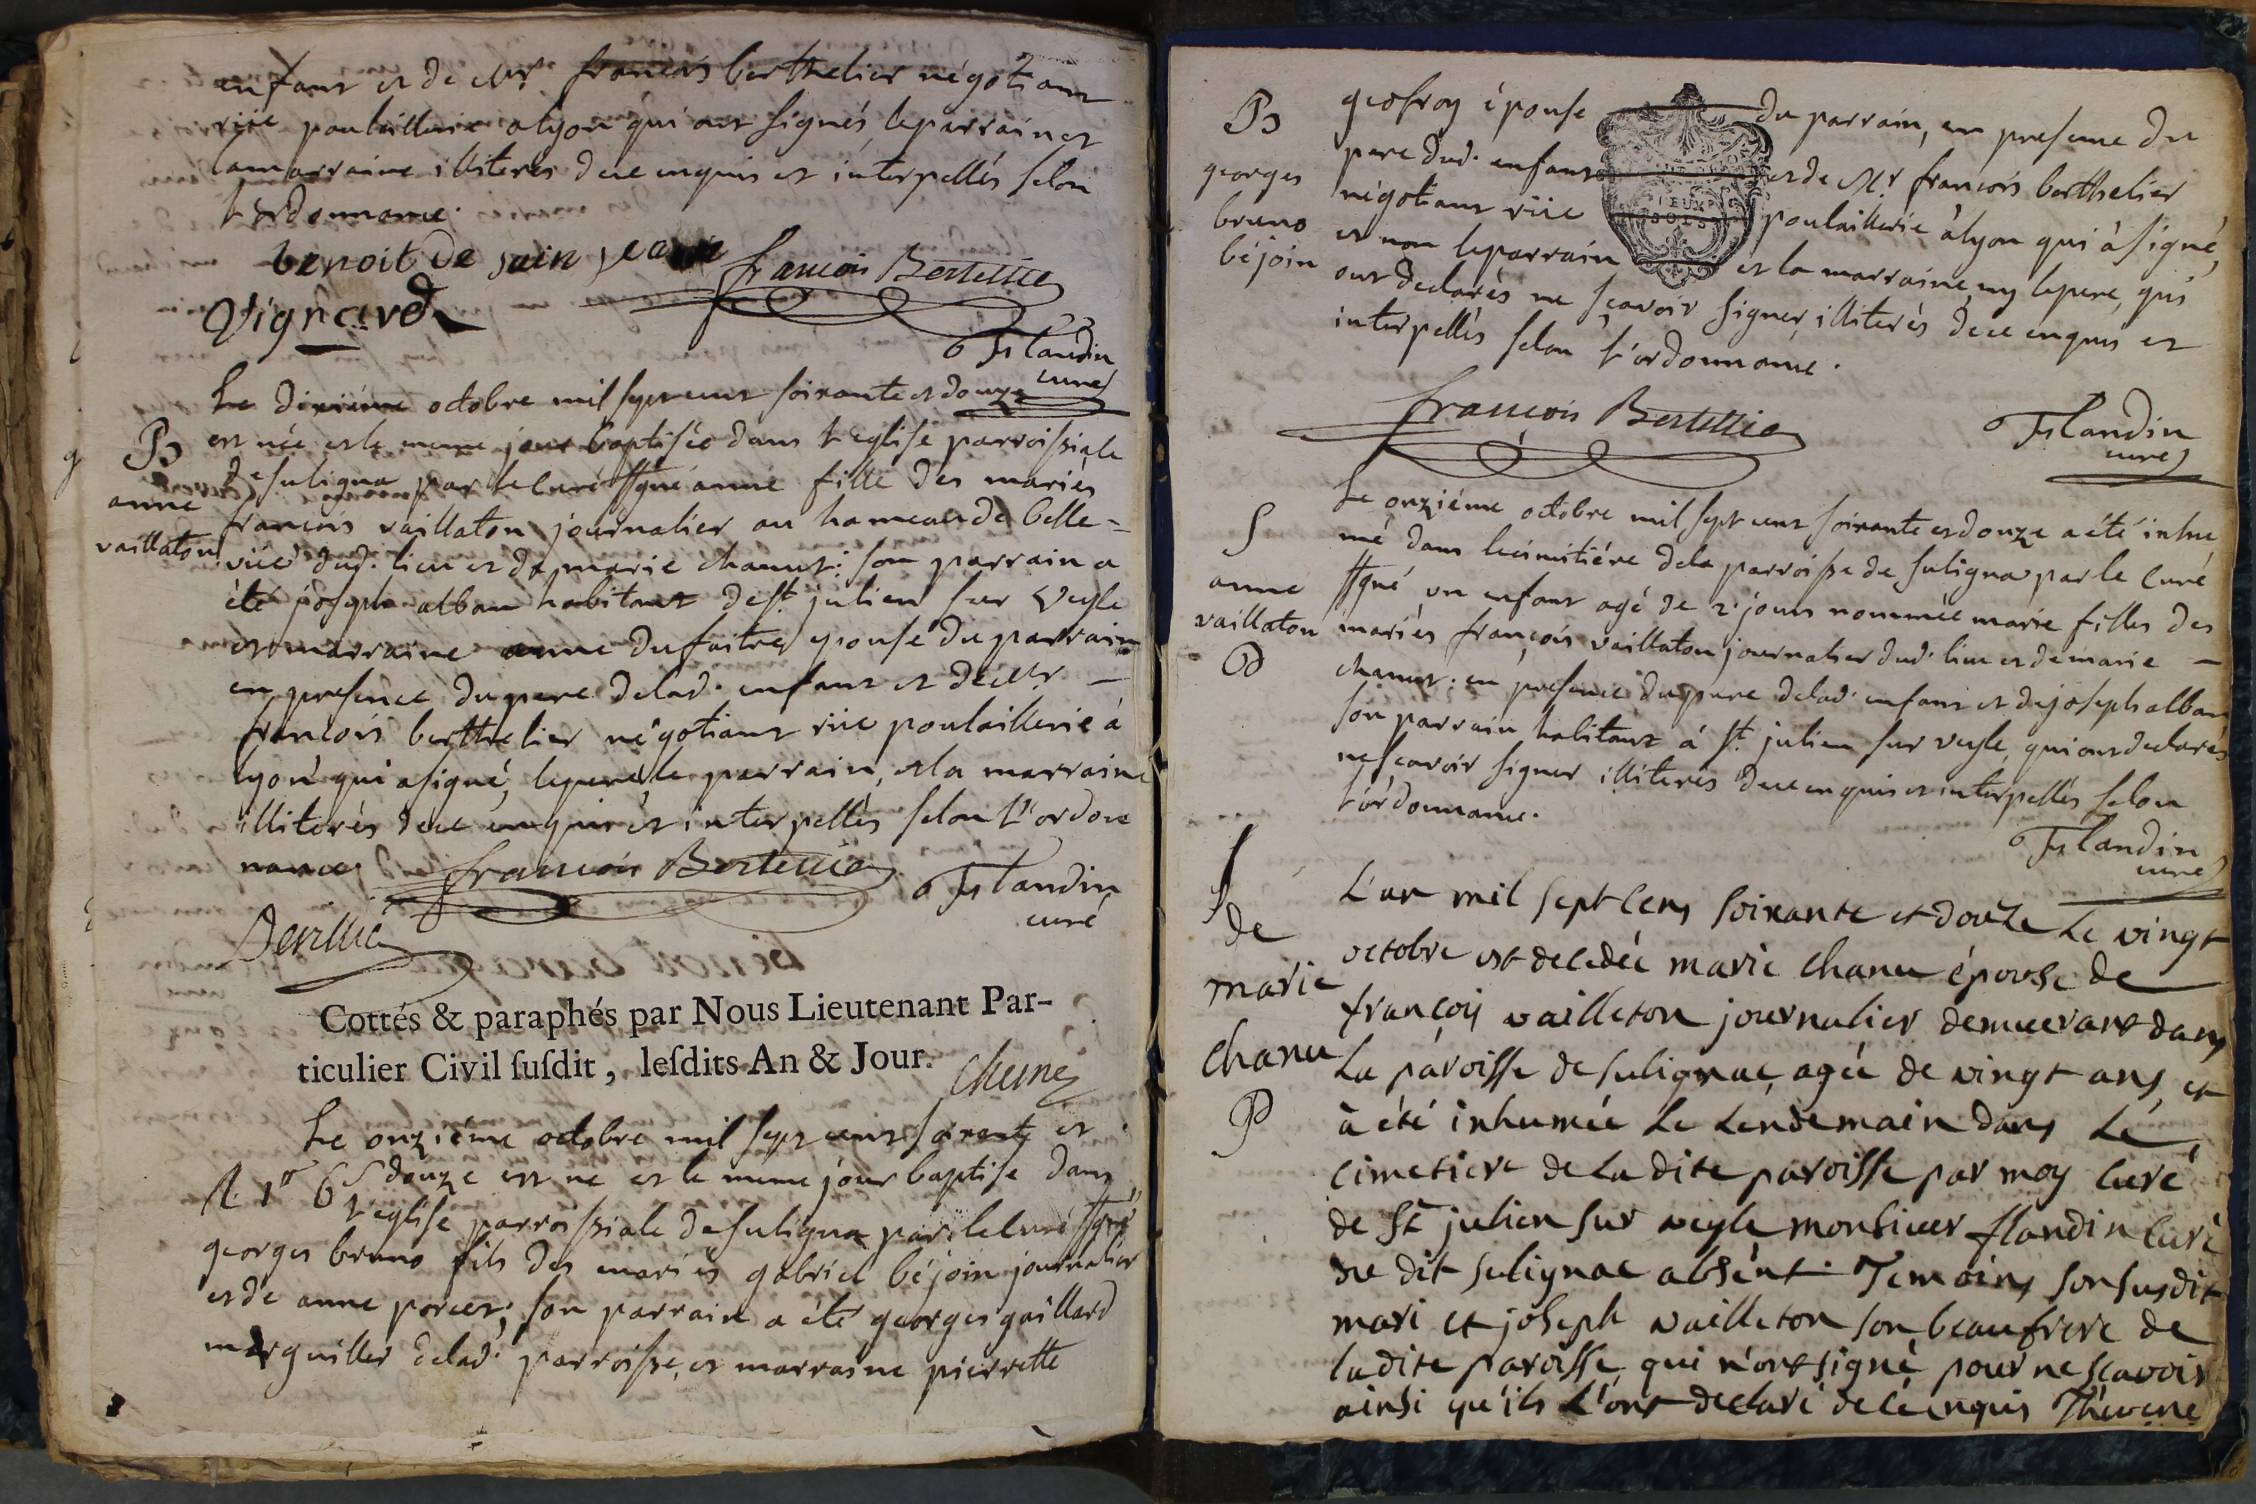 enfant et de Mr françois berthelier négotiant
rüe poulaillerie a lyon qui ont signés le parrain et
la marraine illiterés de ce enquis et interpellés selon
l'ordonnance.
benoit de
françois Bertellie
Vignard
Flandin
curé
Le dixiéme octobre mil sept cent soixante et douze
B
est née et le meme jour baptisée dans l'eglise parroissiale
de suligna par le curé ssgné anne fille des mariés
anne
vaillaton
françois vaillaton journalier au hameau de belle=
vüe dud. lieu et de marie chanut: son parrain a
été joseph alban habitant de st. julien sur Vesle
et marraine anne dufaitre epouse du parrain
en presence du pere de lad. enfant et de Mr —
françois berthelier négotiant rüe poulaillerie á
lyon qui a signé, le pere, le parrain, et la marraine
illiterés de ce enquis et interpellés selon l'ordon
nance.
françois Bertellie
Flandin
curé
Cottés & paraphés par Nous Lieutenant Par-
ticulier Civil ſuſdit, leſdits An & Jour.
Le onziéme octobre mil sept cent soixante et
R. 1er 6s douze est né et le meme jour baptisé dans
l'eglise parroissiale de suligna par le curé ssgné
georges bruno fils des mariés gabriel béjoin journalier
et de anne porcet; son parrain a été georges gaillard
marguiller de lad. parroisse, et marraine pierrette
B
georges
bruno
béjoin
geofroy épouse du parrain, en presence du
pere dud. enfant et de Mr françois berthelier
négotiant rüe poulaillerie à lyon qui à signé,
et non le parrain et la marraine, ny le pere, qui
ont declarés ne sçavoir signer illiterés de ce enquis et
interpellés selon l'ordonnance.
françois Bertellie
Flandin
curé
Le onziéme octobre mil sept cent soixante et douze a été inhu
S
anne
vaillaton
mé dans le cimitiére de la parroisse de suligna par le curé
ssgné un enfant agé de 2. jours nommée marie fille des
mariés françois vaillaton journalier dud. lieu et de marie —
chanut. en presence du pere de lad. enfant et de joseph alban
son parrain habitant á st. julien sur vesle, qui ont declarés
ne sçavoir signer illiterés de ce enquis et interpellés selon
l'ordonnance.
Flandin
curé
S
de
marie
chanu
L'an mil sept cens soixante et douze Le vingt
octobre est decedée marie chanu épouse de
françois vailleton journalier demeurant dans
La paroisse de sulignac agée de vingt ans et
à été inhumée Le Lendemain dans Le
cimetiere de La dite paroisse par moy curé
de St julien sur veyle monsieur flandin curé
du dit sulignac absènt. Temoins son susdit
mari et joseph vailleton son beaufrere de
la dite paroisse qui n'ont signé pour ne sçavoir
ainsi qu'ils L'ont declaré de cè enquis